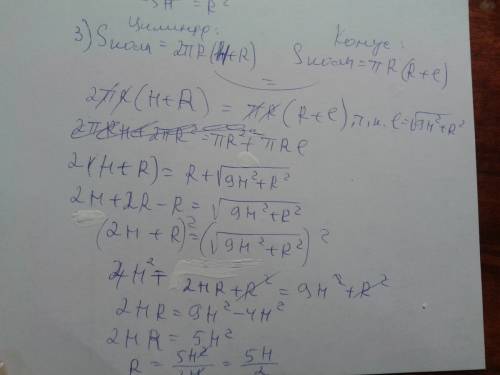 SH = R²
Цилиндр:
3) Sполн = 2πR(H+R)
Конус:
Sполн = πR(R+l)
=
2πR(H+R) = πR(R+l), т.к. l=√9H²+R²
2πRH+2πR²=πR²+πRl
2(H+R) = R+√9H²+R²
2H+2R-R = √9H²+R²
(2H+R)²=(√9H²+R²)²
4H²+ 2HR+R² = 9H²+R²
2HR = 9H²-4H²
2HR = 5H²
R = 5H²/2H = 5H/2